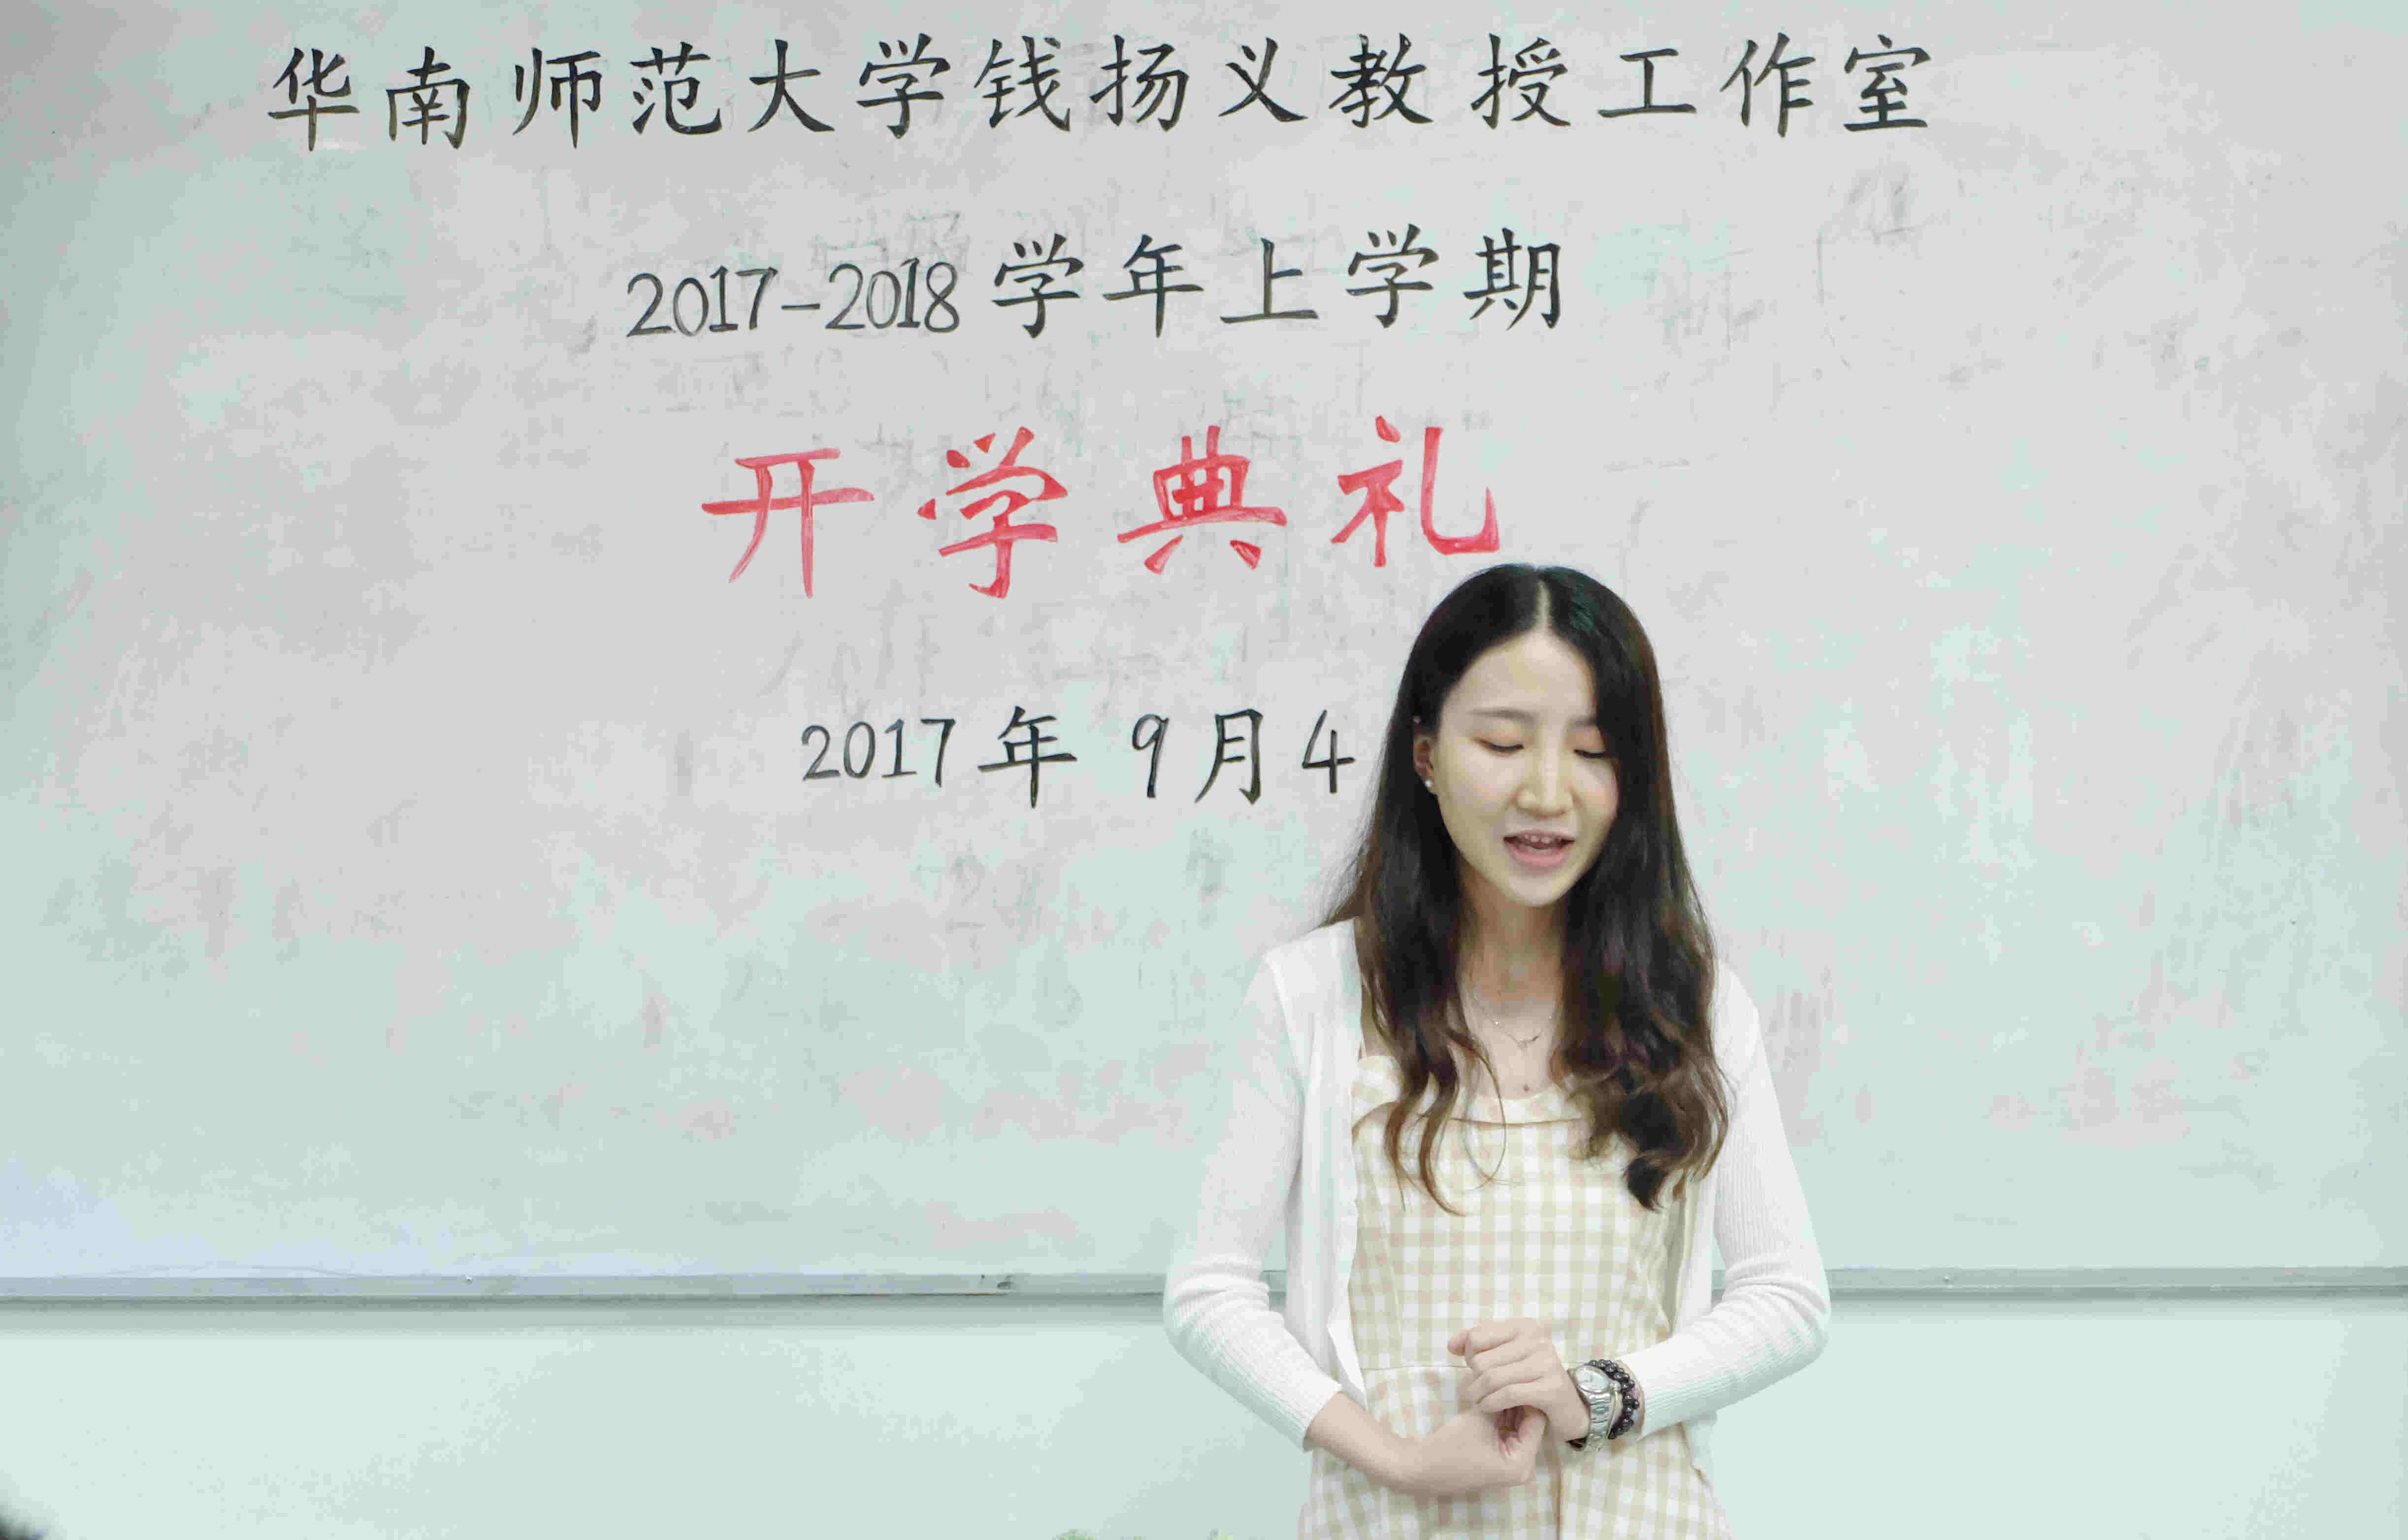 华南师范大学钱扬义教授工作室
2017-2018学年上学期
开学典礼
2017年9月4